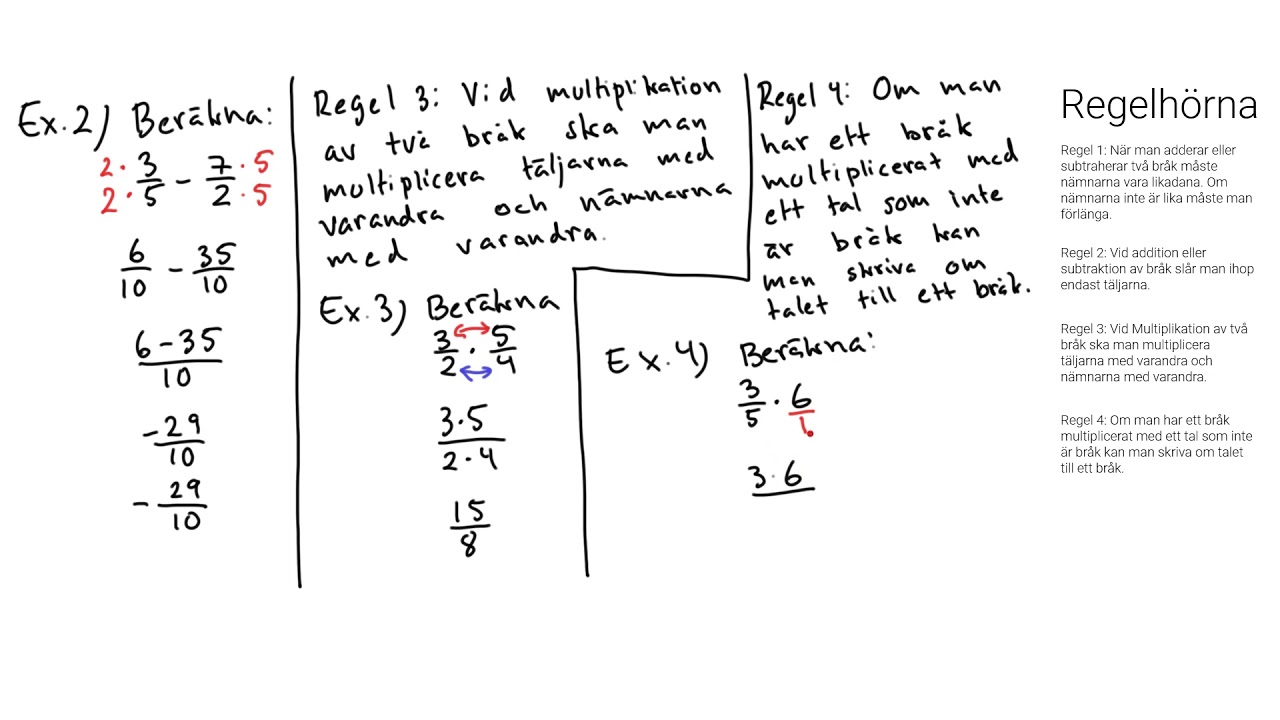 Ex.2) Beräkna:
2· 3/5 - 7/2 ·5
2· ·5
6/10 - 35/10
6-35/10
-29/10
- 29/10
Regel 3: Vid multiplikation
av två bråk ska man
multiplicera täljarna med
varandra och nämnarna
med varandra.
Ex.3) Beräkna
3/2 · 5/4
3·5/2·4
15/8
Regel 4: Om man
har ett bråk
multiplicerat med
ett tal som inte
är bråk kan
man skriva om
talet till ett bråk.
Ex.4) Beräkna:
3/5 · 6/1
3·6
Regelhörna
Regel 1: När man adderar eller
subtraherar två bråk måste
nämnarna vara likadana. Om
nämnarna inte är lika måste man
förlänga.
Regel 2: Vid addition eller
subtraktion av bråk slår man ihop
endast täljarna.
Regel 3: Vid Multiplikation av två
bråk ska man multiplicera
täljarna med varandra och
nämnarna med varandra.
Regel 4: Om man har ett bråk
multiplicerat med ett tal som inte
är bråk kan man skriva om talet
till ett bråk.